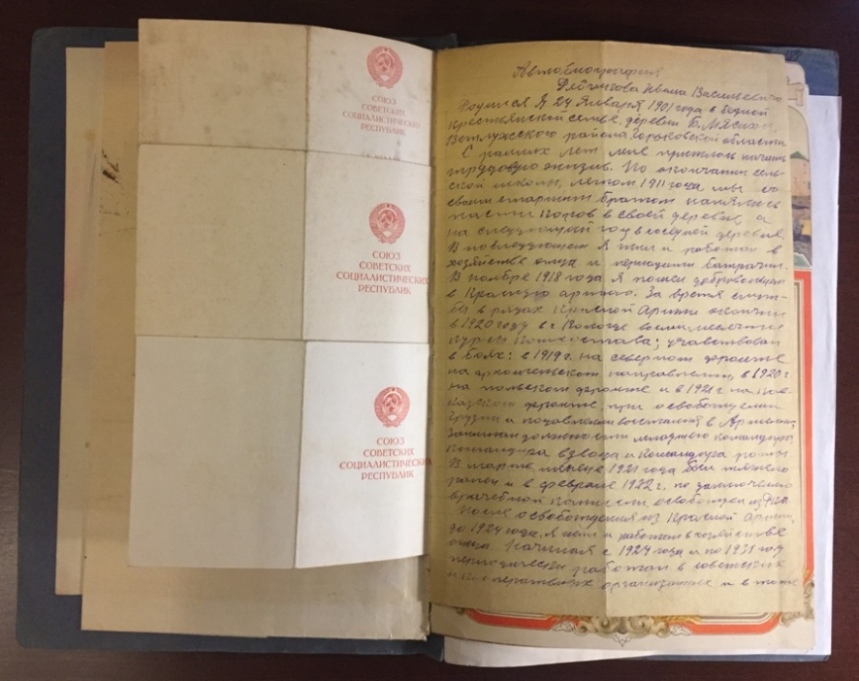 СОЮЗ
СОВЕТСКИХ
СОЦИАЛИСТИЧЕСКИХ
РЕСПУБЛИК
СОЮЗ
СОВЕТСКИХ
СОЦИАЛИСТИЧЕСКИХ
РЕСПУБЛИК
СОЮЗ
СОВЕТСКИХ
СОЦИАЛИСТИЧЕСКИХ
РЕСПУБЛИК
Автобиография
Ивана Васильевича
Родился Я 24 Января 1901 года в бедной
крестьянской семье, деревни Б.
Ветлужского района Горьковской области
С ранних лет мне пришлось начинать
трудовую жизнь. По окончании сель-
ской школы, летом 1911 года мы со
своим старшим братом нанялись
пасти коров в своей деревне, а
на следующий год в соседней деревне
В последующем Я жил и работал в
хозяйстве отца и периодами батрачил.
В ноябре 1918 года Я пошел добровольцем
в Красную армию. За время служ-
бы в рядах Красной Армии окончил
в 1920 году в г.
курсы комсостава; участвовал
в боях: в 1919 г. на северном фронте
на архангельском направлении, в 1920 г.
на польском фронте и в 1921 г на Кав-
казском фронте, при освобождении
Грузии и подавлении восстания в Армении,
занимал должности младшего командира,
командира взвода и командира роты
В марте 1921 года был тяжело
ранен и в феврале 1922 г. по заключению
врачебной комиссии освобожден из
После освобождения из Красной Армии,
до 1924 года, Я жил и работал в хозяйстве
отца. Начиная с 1924 года и по 1931 год
периодически работал в советских
и кооперативных организациях и в